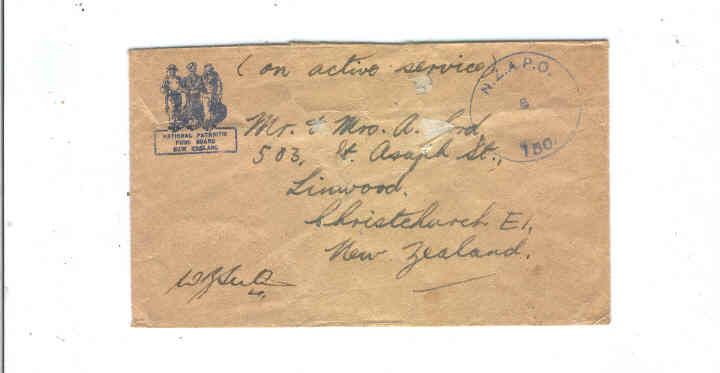 (on active service)
N.Z.A.P.O.
150.
NATIONAL PATRIOTIC
FUND BOARD
NEW ZEALAND
Mr. & Mrs. A. Ford,
503, St. Asaph St.,
Linwood.
Christchurch E1,
New Zealand.